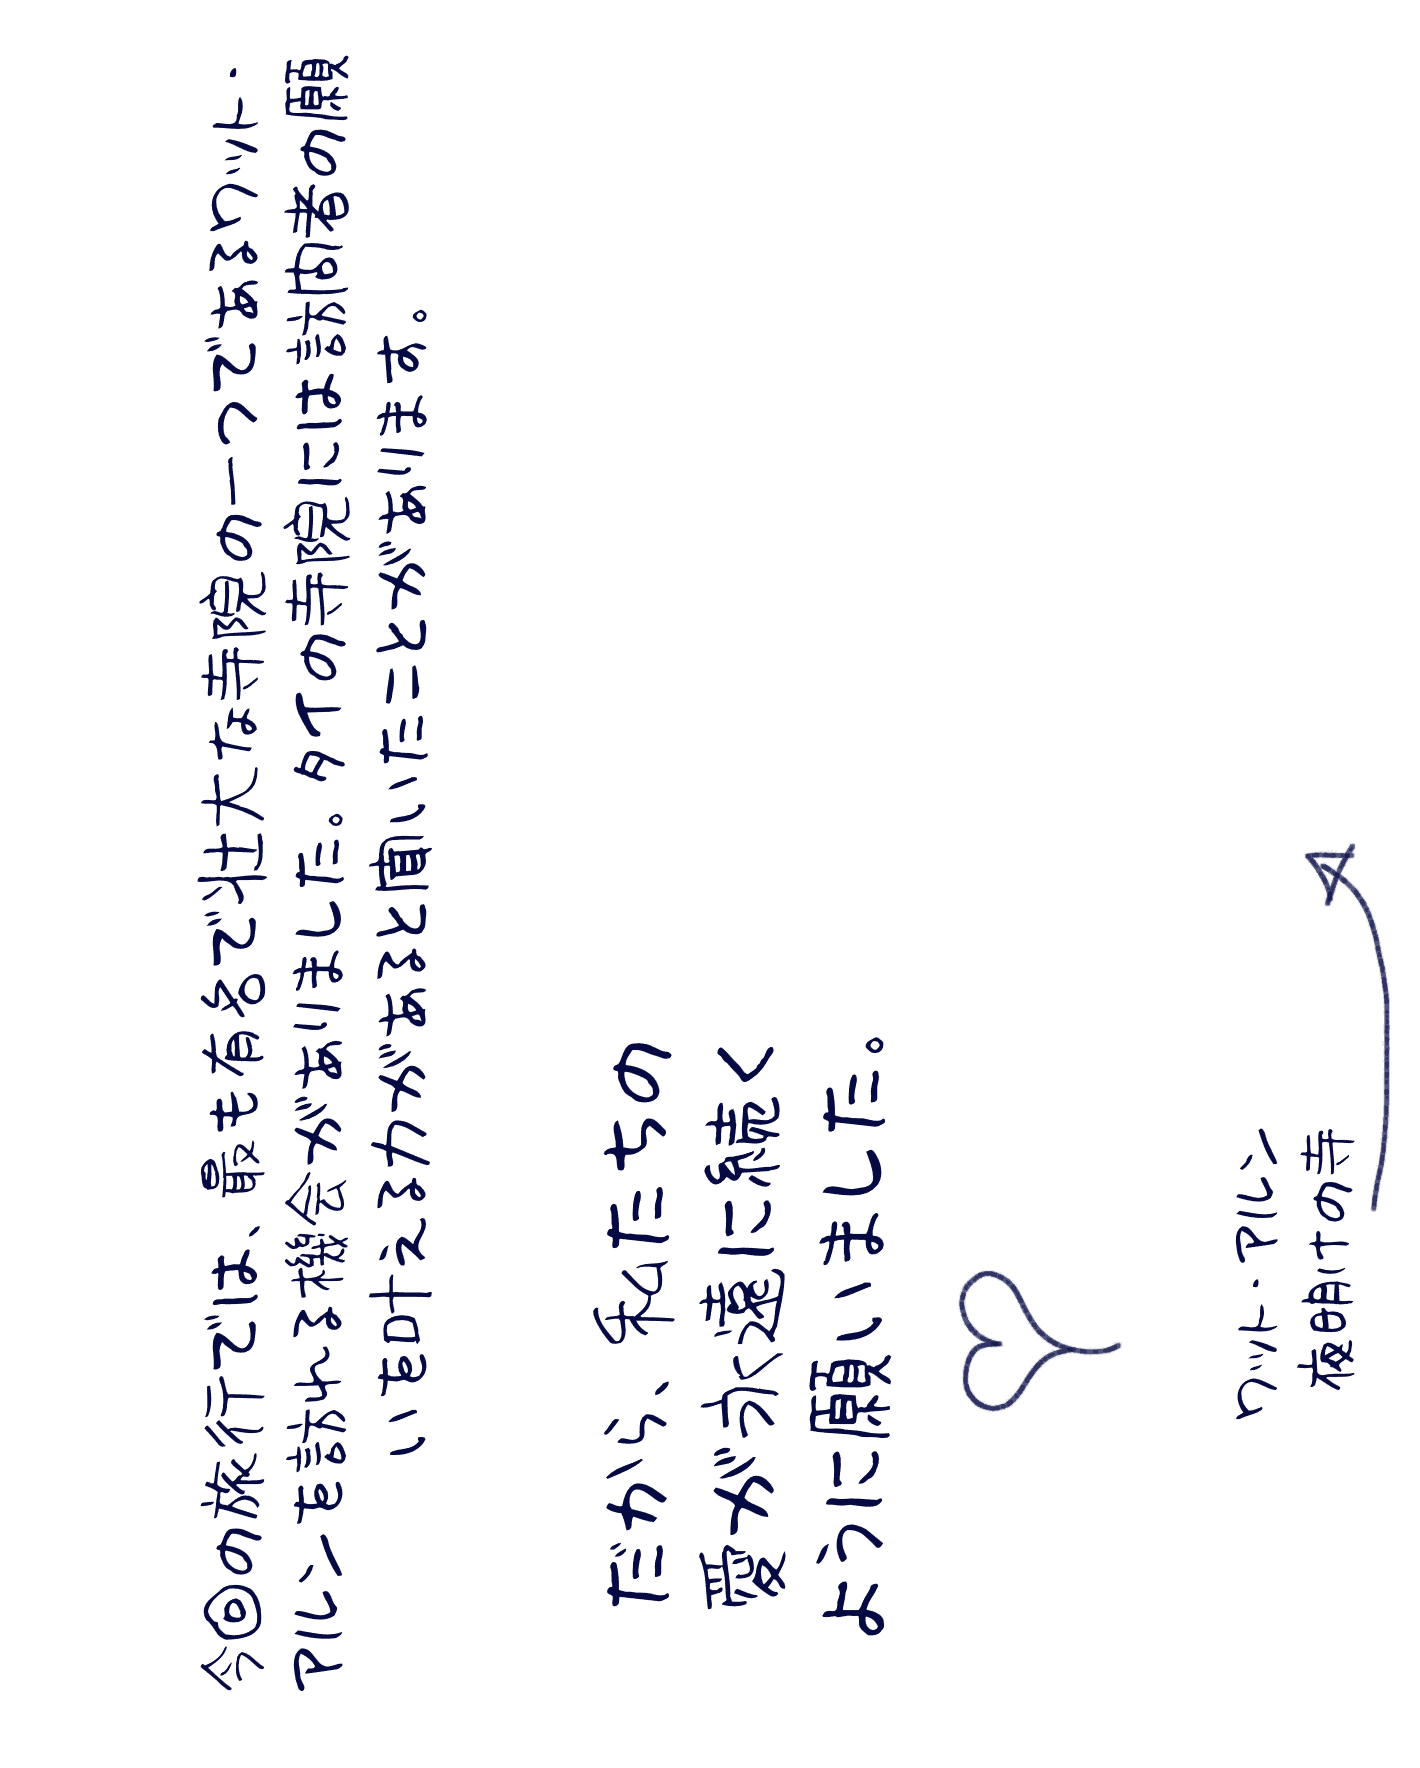 今回の旅行では、最も有名で壮大な寺院の一つであるワット・
アルンを訪れる機会がありました。タイの寺院には訪問者の願
いを叶える力があると聞いたことがあります。
だから、私たちの
愛が永遠に続く
ように願いました。
ワット・アルン
夜明けの寺